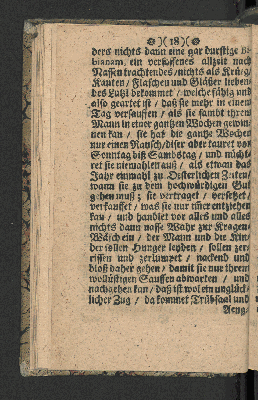 )( 18 )(
ders nichts dann eine gar durstige Bi-
bianam, ein versoffenes allzeit nach
Nassen trachtendes/nichts als Krüg/
Kanten / Flaschen und Gläser liebendes
Lutzl bekommet / welche fähig und
also geartet ist / daß sie mehr in einem
Tag versauffen / als sie sambt ihrem
Mann in einer gantzen Wochen gewin-
nen kan / sie hat die gantze Wochen
nur einen Rausch/diser aber tauret von
Sonntag biß Sambstag / und nüchte-
ret sie niemahlen auß / als etwan das
Jahr einmahl zu Oesterlichen Zeiten/
wann sie zu dem hochwürdigen Gut
gehen muß; sie vertraget / versetzet /
verkauffet / was sie nur ihme entziehen
kan / und handlet vor alles und alles
nichts dann nasse Wahr zur Kragen-
Wäsch ein / der Mann und die Kin-
der sollen Hunger leyden / sollen zer-
rissen und zerlumpet / nackend und
bloß daher gehen / damit sie nur ihrem
wollüstigen Sauffen abwarten / und
nachgehen kan / daß ist wol ein unglück-
licher Zug / da kommet Trübsaal und
Aeng-